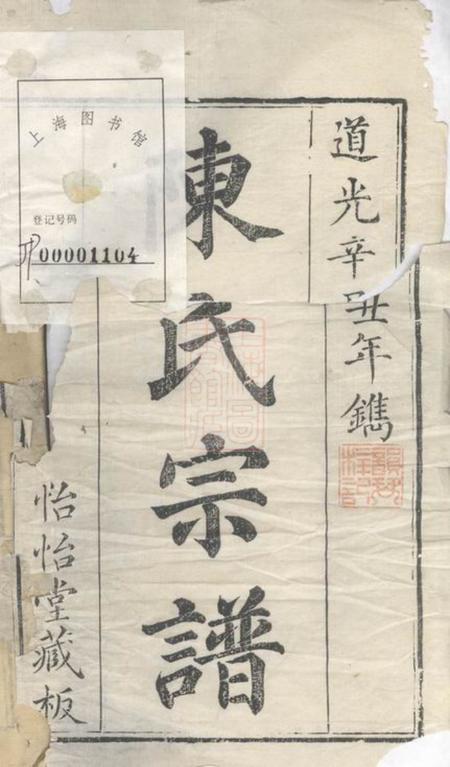 道光辛丑年鐫
陳氏宗譜
怡怡堂藏板
上海图书馆
登记号码
00001104